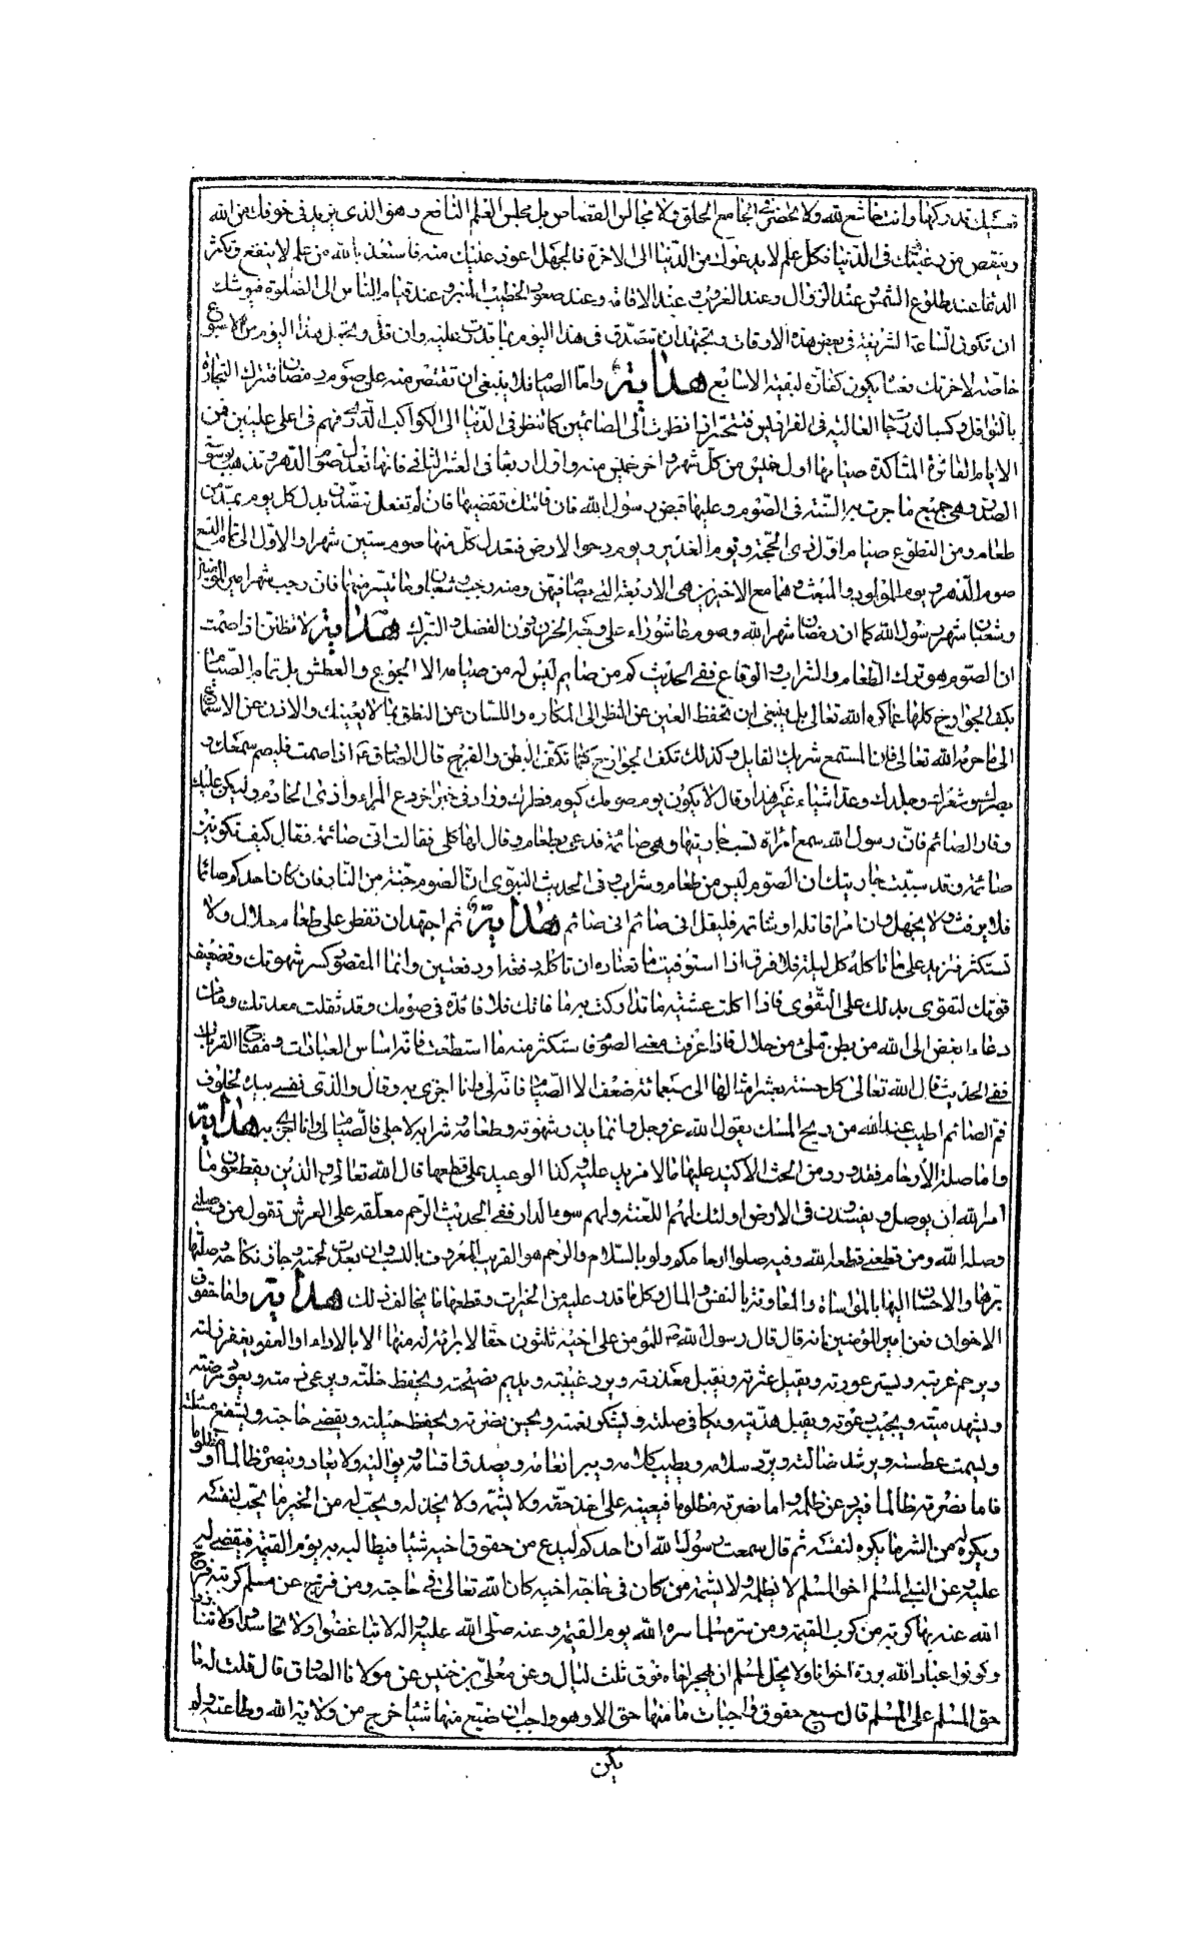 قدركها وانت خاشع لله ولا تحضر في الجامع الحلق ولا مجالس القصاص بل مجلس العلم النافع وهو الذي يزيد في خوفك من الله
وينقص من رغبتك في الدنيا فكل علم لا يدعوك من الدنيا الى الاخرة فالجهل عود عليك منه فاستعذ بالله من علم لا ينفع وتكثر
الدعاء عند طلوع الشمس وعند الزوال وعند الغروب وعند الاقامة وعند صعود الخطيب المنبر وعند قيام الناس الى الصلوة فيوشك
ان تكون الساعة الشريفة في بعض هذه الاوقات وتجتهد ان تتصدق في هذا اليوم بما قدرت عليه وان قل وتجعل هذا اليوم من الاسبوع
خاصة لاخرتك فعسا يكون كفارة لبقية الاسابيع هداية واما الصيام فلا ينبغي ان تقتصر منه على صوم رمضان فتترك التجارة
بالنوافل وكسب الدرجات العالية في الفراديس فتتحسر اذا نظرت الى الصائمين كما تنظر في الدنيا الى الكواكب الدري وهم في اعلى عليين فمن
الايام الفائزة المتاكدة صيامها اول خميس من كل شهر واخر خميس منه واول اربعا في العشر الثاني فانها تعدل صوم الدهر وتذهب بوسوسة
الصدر وهي جميع ما جرت به السنة في الصوم وعليها قبض رسول الله فان فاتتك تقضيها فان لم تفعل تتصدق بدل كل يوم بمد من
طعام ومن التطوع صيام اول ذي الحجة ويوم الغدير ويوم دحو الارض فتعدل كل منها صوم ستين شهرا والاول الى تمام التسع
صوم الدهر ويوم المولود والمبعث وهما مع الاخيرين هي الاربعة التي يصام فيهن ومنه رجب وشعبان او ما تيسر منهما فان رجب شهر امير المؤمنين
وشعبان شهر رسول الله كما ان رمضان شهر الله وصوم عاشوراء على وجه الحزن دون الفضل والتبرك هداية لا تظنن اذا صمت
ان الصوم هو ترك الطعام والشراب والوقاع ففي الحديث كم من صايم ليس له من صيامه الا الجوع والعطش بل تمام الصيام
بكف الجوارح كلها عما كره الله تعالى بل ينبغي ان تحفظ العين عن النظر الى المكاره واللسان عن النطق بما لا يعنيك والاذن عن الاستماع
الى ما حرمه الله تعالى فان المستمع شريك القايل وكذلك تكف الجوارح كما تكف البطن والفرج قال الصادق ع اذا صمت فليصم سمعك و
بصرك وشعرك وجلدك وعد اشياء غير هذا وقال لا يكون يوم صومك كيوم فطرك وزاد في خبر اخر ودع المراء واذى الخادم وليكن عليك
وقار الصائم فان رسول الله سمع امراة تسب جاريتها وهي صائمة فدعى بطعام وقال لها كلي فقالت اني صائمة فقال كيف تكونين
صائمة وقد سببت جاريتك ان الصوم ليس من طعام وشراب وفي الحديث النبوي انما الصوم جنة من النار فان كان احدكم صائما
فلا يرفث ولا يجهل وان امرا قاتله او شاتمه فليقل اني صائم اني صائم هداية ثم اجتهد ان تفطر على طعام حلال ولا
تستكثر فتزيد على ما تاكله كل ليلة فلا فرق اذا استوفيت ما تعتاده ان تاكله دفعة او دفعتين وانما المقصود كسر شهوتك وتضعيف
قوتك لتقوى بذلك على التقوى فاذا اكلت عشية ما تداركت به ما فاتك فلا فائدة في صومك وقد ثقلت معدتك وما من
وعاء ابغض الى الله من بطن ملئ من حلال فاذا عرفت معنى الصوم فاستكثر منه ما استطعت فانه اساس العبادات ومفتاح القربات
ففي الحديث قال الله تعالى كل حسنة بعشر امثالها الى سبعمائة ضعف الا الصيام فانه لي وانا اجزي به وقال والذي نفسي بيده لخلوف
فم الصائم اطيب عند الله من ريح المسك يقول الله عز وجل انما يذر شهوته وطعامه وشرابه لاجلي فالصيام لي وانا اجزي به هداية
واما صلة الأرحام فقد ورد من الحث الاكيد عليها ما لا مزيد عليه وكذا الوعيد على قطعها قال الله تعالى والذين يقطعون ما
امر الله ان يوصل ويفسدون في الارض اولئك لهم اللعنة ولهم سوء الدار ففي الحديث الرحم معلقة على العرش تقول من وصلني
وصله الله ومن قطعني قطعه الله وفيه صلوا ارحامكم ولو بالسلام والرحم هو القريب المعروف بالنسب وان بعدت لحمته وجاز نكاحه وصلتها
برها والاحسان اليها بالمواساة والمعاونة بالنفس والمال وكل ما قدر عليه من الخيرات وقطعها ما يخالف ذلك هداية واما حقوق
الاخوان فعن امير المؤمنين انه قال قال رسول الله ص للمؤمن على اخيه ثلثون حقا لا براءة له منها الا بالاداء او العفو يغفر زلته
ويرحم غربته ويستر عورته ويقيل عثرته ويقبل معذرته ويرد غيبته ويديم نصيحته ويحفظ خلته ويرعى ذمته ويعود مرضته
ويشهد ميتته ويجيب دعوته ويقبل هديته ويكافي صلته ويشكر نعمته ويحسن نصرته ويحفظ حليلته ويقضي حاجته ويشفع مسئلته
ويسمت عطسته ويرشد ضالته ويرد سلامه ويطيب كلامه ويبر انعامه ويصدق اقسامه ويواليه ولا يعاديه وينصره ظالما او مظلوما
فاما نصرته ظالما فيرده عن ظلمه واما نصرته مظلوما فيعينه على اخذ حقه ولا يشتمه ولا يخذله ويحب له من الخير ما يحب لنفسه
ويكره له من الشر ما يكره لنفسه ثم قال سمعت رسول الله ان احدكم ليدع من حقوق اخيه شيئا فيطالبه به يوم القيمة فيقضى له
عليه وعن النبي المسلم اخو المسلم لا يظلمه ولا يشتمه من كان في حاجة اخيه كان الله تعالى في حاجته ومن فرج عن مسلم كربة فرج
الله عنه بها كربة من كرب القيمة ومن ستر مسلما ستره الله يوم القيمة وعنه صلى الله عليه واله لا تباغضوا ولا تحاسدوا ولا تنافروا
وكونوا عباد الله بررة اخوانا ولا يحل لمسلم ان يهجر اخاه فوق ثلث ليال وعن معلى بن خنيس عن مولانا الصادق قال قلت له ما
حق المسلم على المسلم قال سبع حقوق واجبات ما منها حق الا وهو واجب ان ضيع منها شيئا خرج من ولاية الله وطاعته ولم
يكن